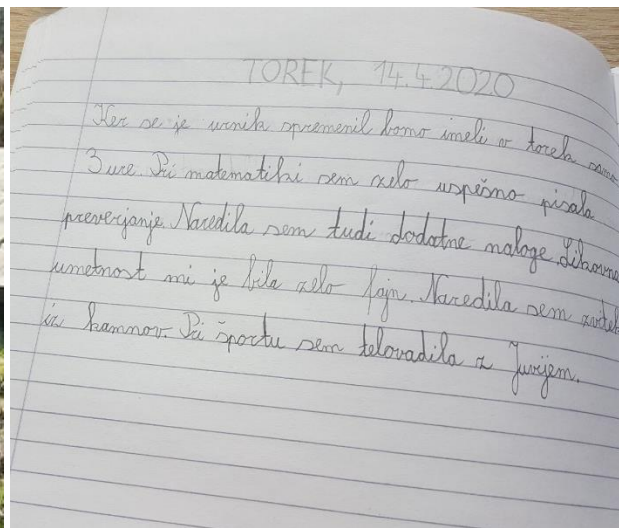 TOREK, 14.4.2020
Ker se je urnik spremenil bomo imeli v torek samo
3 ure. Pri matematiki sem zelo uspešno pisala
preverjanje. Naredila sem tudi dodatne naloge. Likovna
umetnost mi je bila zelo fajn. Naredila sem zvitek
iz kamnov. Pri športu sem telovadila z Jurijem.